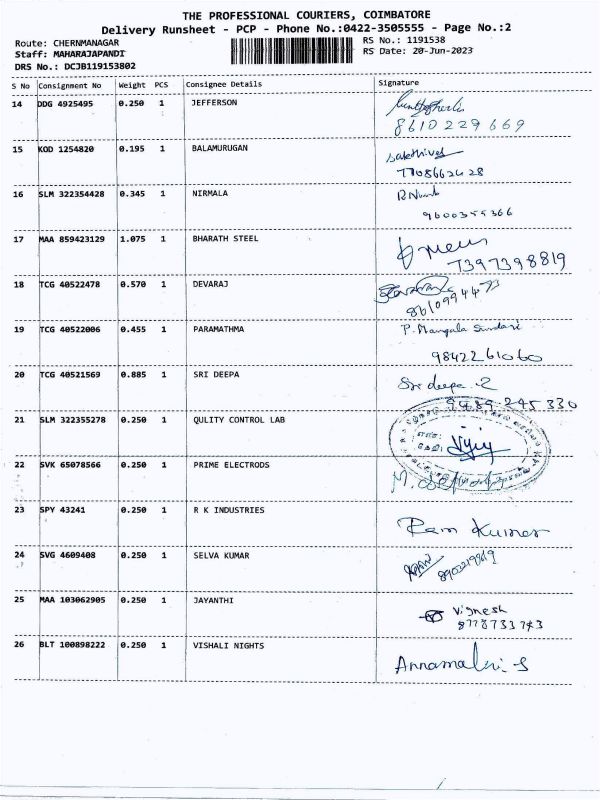 THE PROFESSIONAL COURIERS, COIMBATORE
Delivery Runsheet - PCP - Phone No.:0422-3505555 - Page No.:2
Route: CHERNMANAGAR
RS No.: 1191538
Staff: MAHARAJAPANDI
RS Date: 20-Jun-2023
DRS No.: DCJB119153802
S No Consignment No Weight PCS Consignee Details Signature
14 DDG 4925495 0.250 1 JEFFERSON
8610229669
15 KOD 1254820 0.195 1 BALAMURUGAN
sakthivel
7708662428
16 SLM 322354428 0.345 1 NIRMALA
9600355366
17 MAA 859423129 1.075 1 BHARATH STEEL
7397398819
18 TCG 40522478 0.570 1 DEVARAJ
8610994473
19 TCG 40522006 0.455 1 PARAMATHMA
P. Mangala Sundari
9842261060
20 TCG 40521569 0.885 1 SRI DEEPA
Sri deepa .2
9489 245 330
21 SLM 322355278 0.250 1 QULITY CONTROL LAB
22 SVK 65078566 0.250 1 PRIME ELECTRODS
23 SPY 43241 0.250 1 R K INDUSTRIES
Ram Kumar
24 SVG 4609408 0.250 1 SELVA KUMAR
25 MAA 103062905 0.250 1 JAYANTHI
Vignesh
8778733743
26 BLT 100898222 0.250 1 VISHALI NIGHTS
Annamalai S